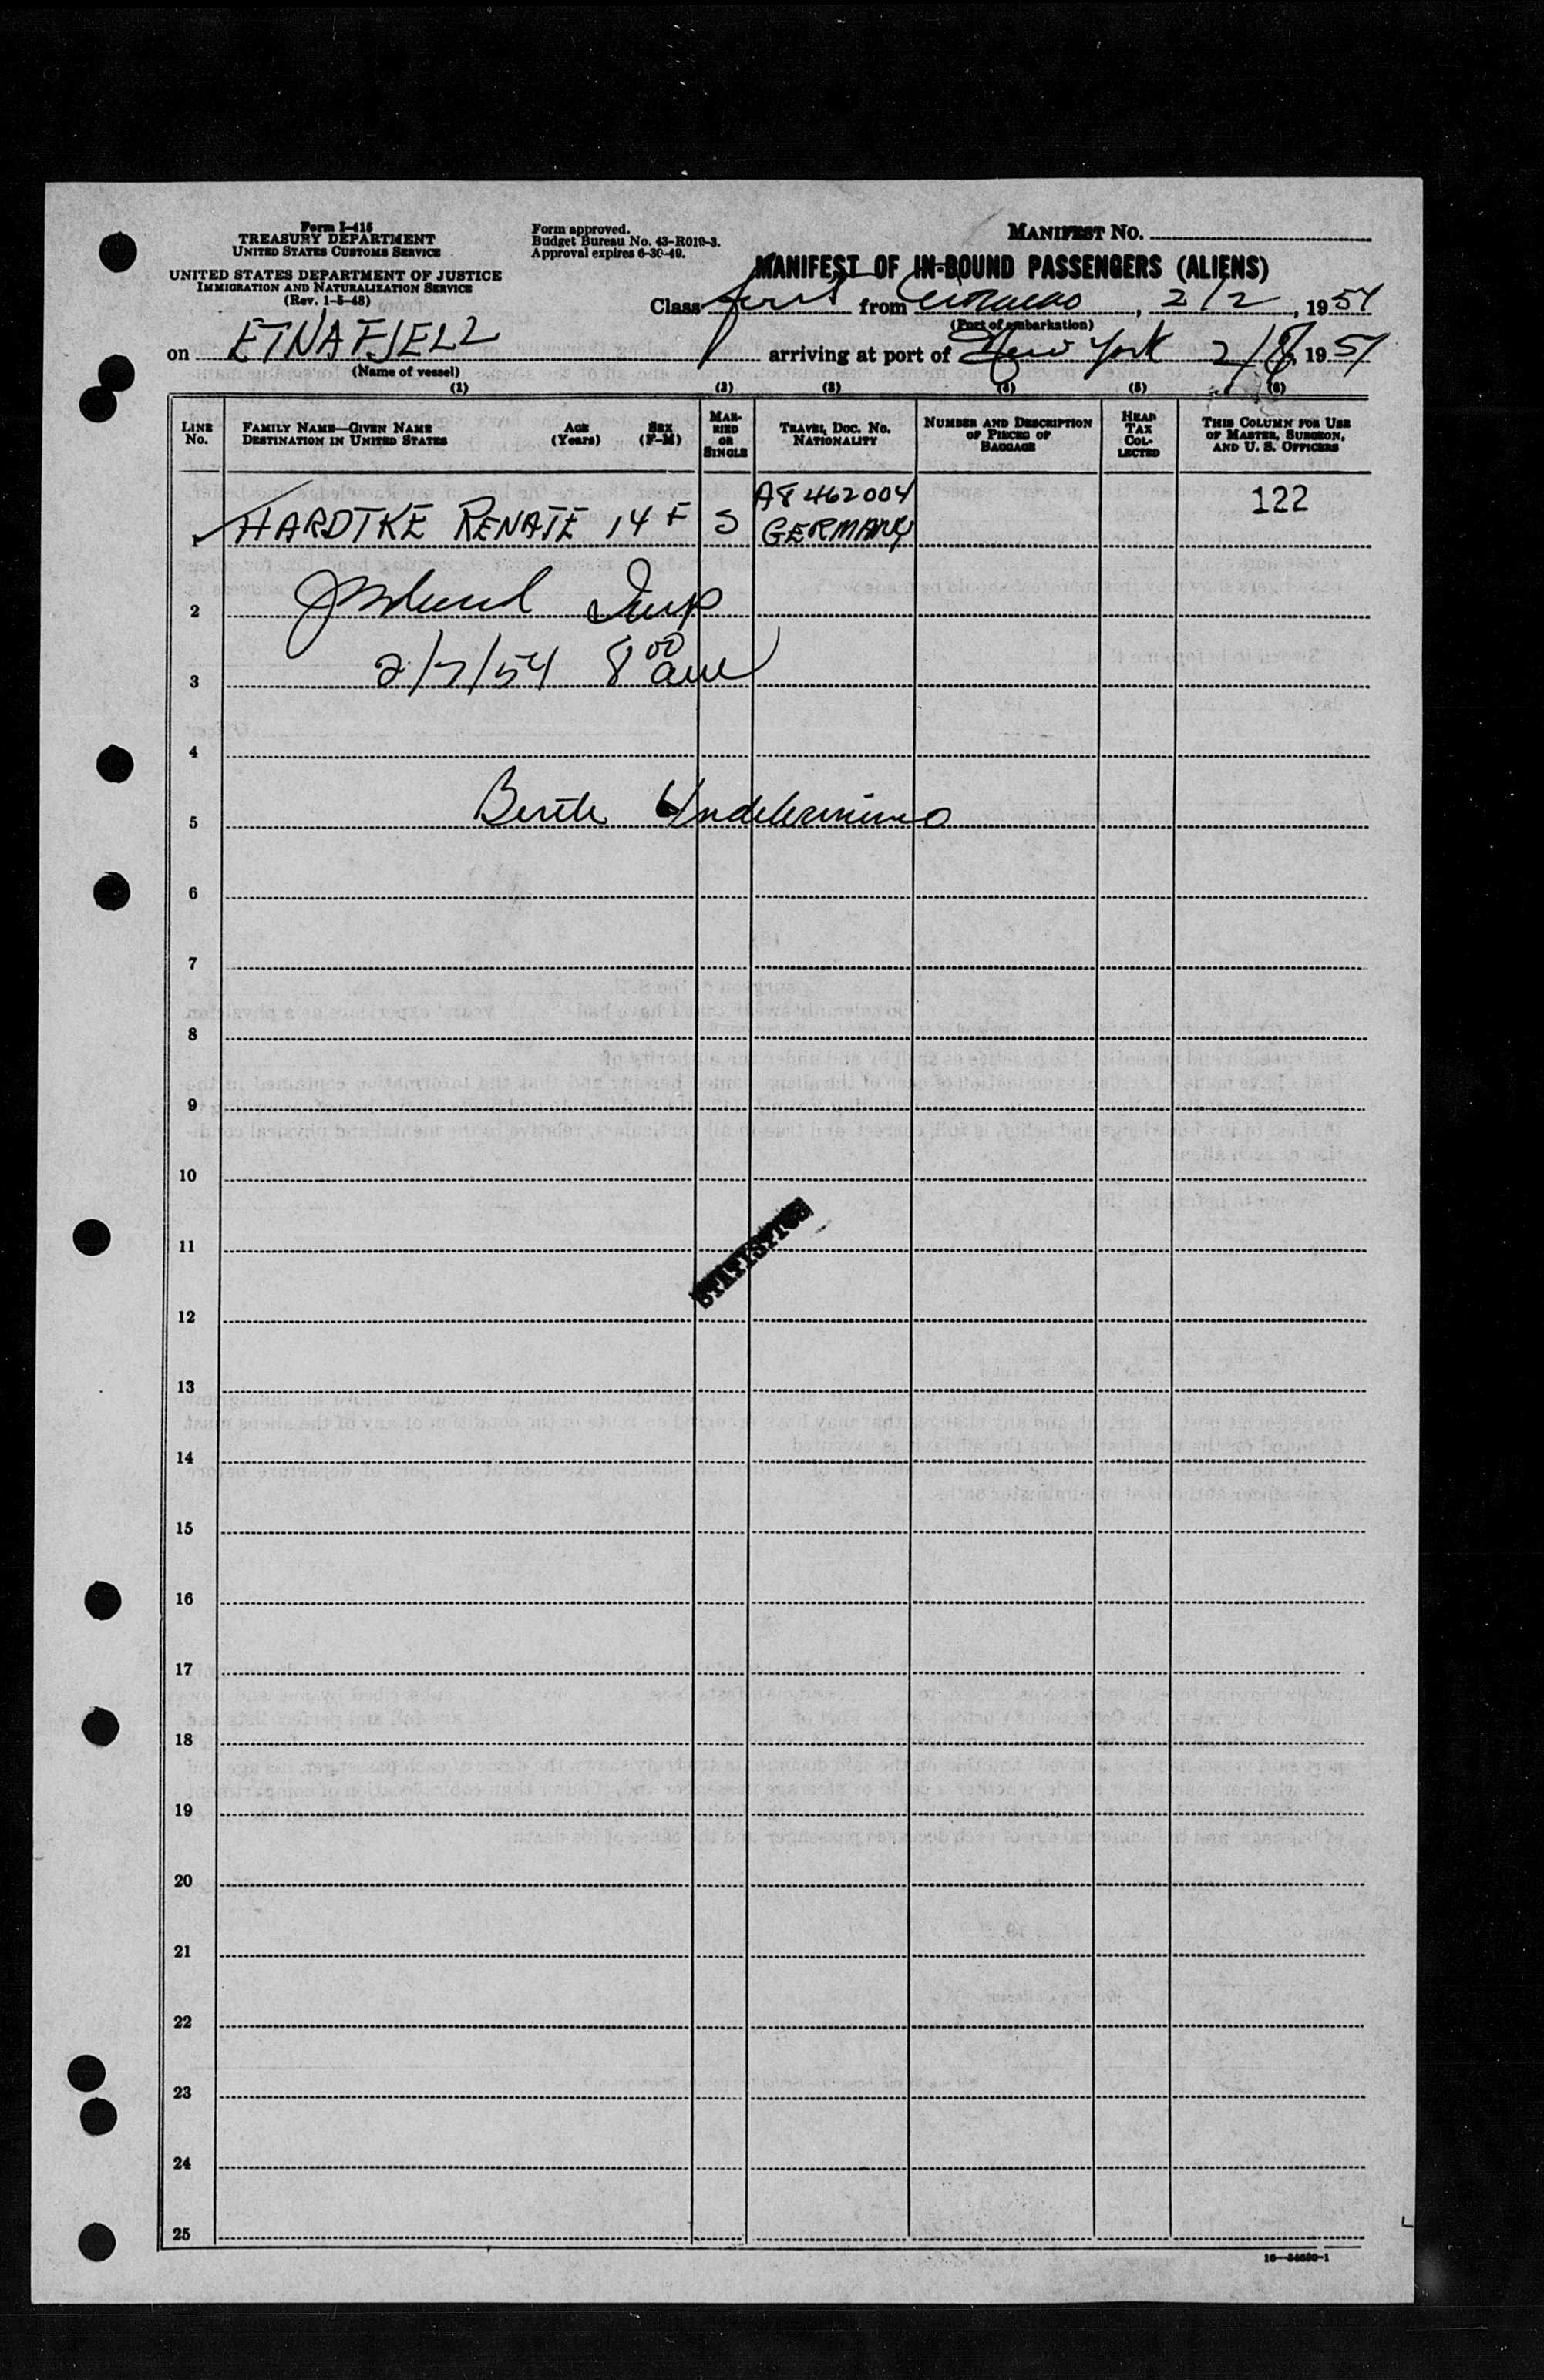 Form I-415
TREASURY DEPARTMENT
UNITED STATES CUSTOMS SERVICE
UNITED STATES DEPARTMENT OF JUSTICE
IMMIGRATION AND NATURALIZATION SERVICE
(Rev. 1-5-48)
Form approved.
Budget Bureau No. 43-R019-3.
Approval expires 6-30-49.
MANIFEST No.
MANIFEST OF IN-BOUND PASSENGERS (ALIENS)
Class first from Curacao, 2/2, 1954
(Port of embarkation)
on ETNAFJELL arriving at port of New York 2/ 1954
(Name of vessel)
(1) (2) (3) (4) (5) (6)
LINE No.
FAMILY NAME—GIVEN NAME
DESTINATION IN UNITED STATES
AGE (Years)
SEX (F-M)
MARRIED OR SINGLE
TRAVEL DOC. NO.
NATIONALITY
NUMBER AND DESCRIPTION OF PIECES OF BAGGAGE
HEAD TAX COLLECTED
THIS COLUMN FOR USE OF MASTER, SURGEON, AND U. S. OFFICERS
A8 462004 122
1 HARDTKE RENATE 14 F S GERMANY
2 Insp
3 2/7/54 8 00 am
4
5 Berth Undetermined
6
7
8
9
10
11
STATISTICS
12
13
14
15
16
17
18
19
20
21
22
23
24
25
16—54650-1